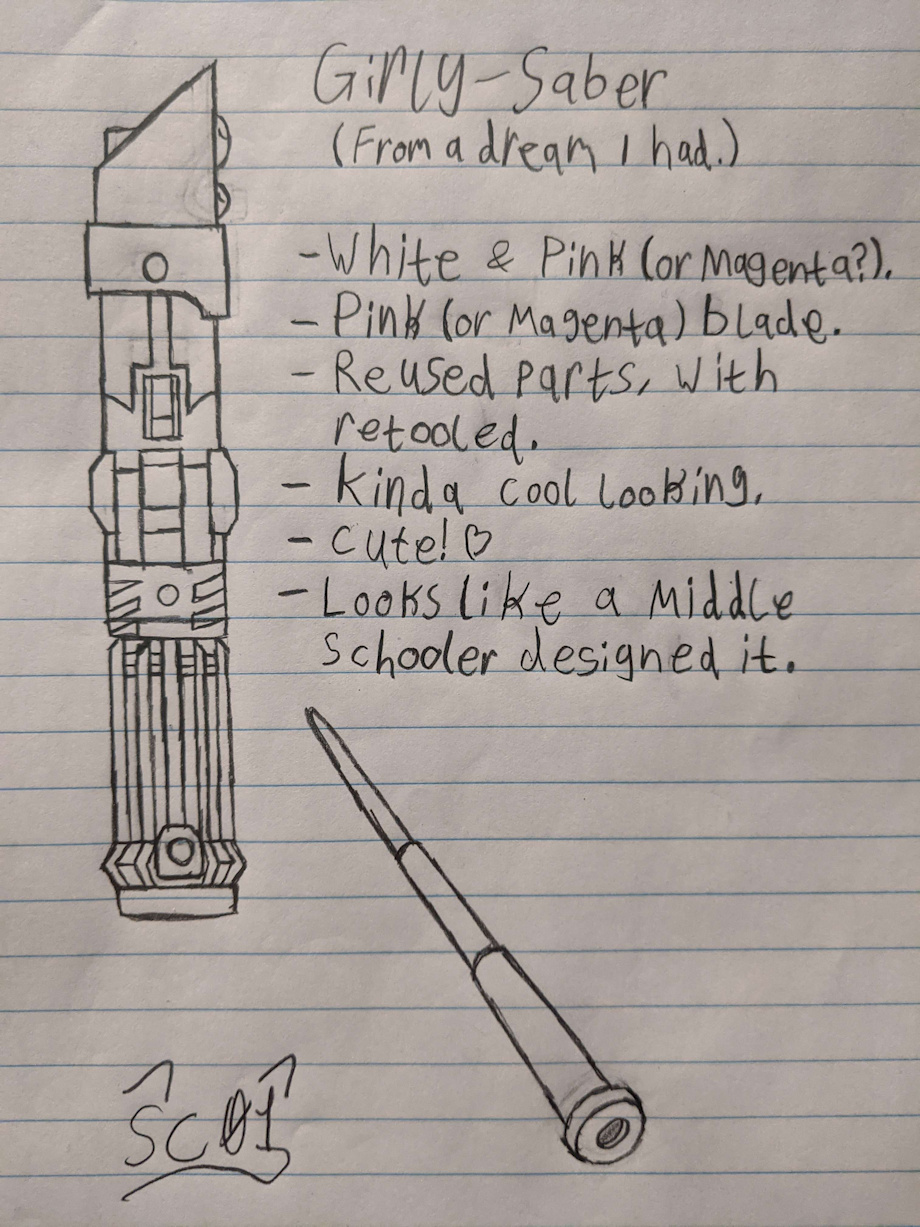 Girly-Saber
(From a dream I had.)
-White & Pink (or Magenta?).
- Pink (or Magenta) blade.
- Reused parts, with
retooled.
- Kinda cool looking.
- Cute! ♡
- Looks like a Middle
Schooler designed it.
SC01